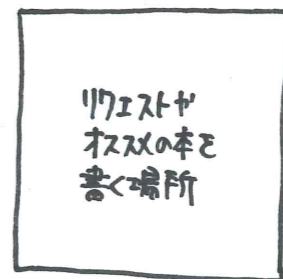 リクエストや
オススメの本を
書く場所